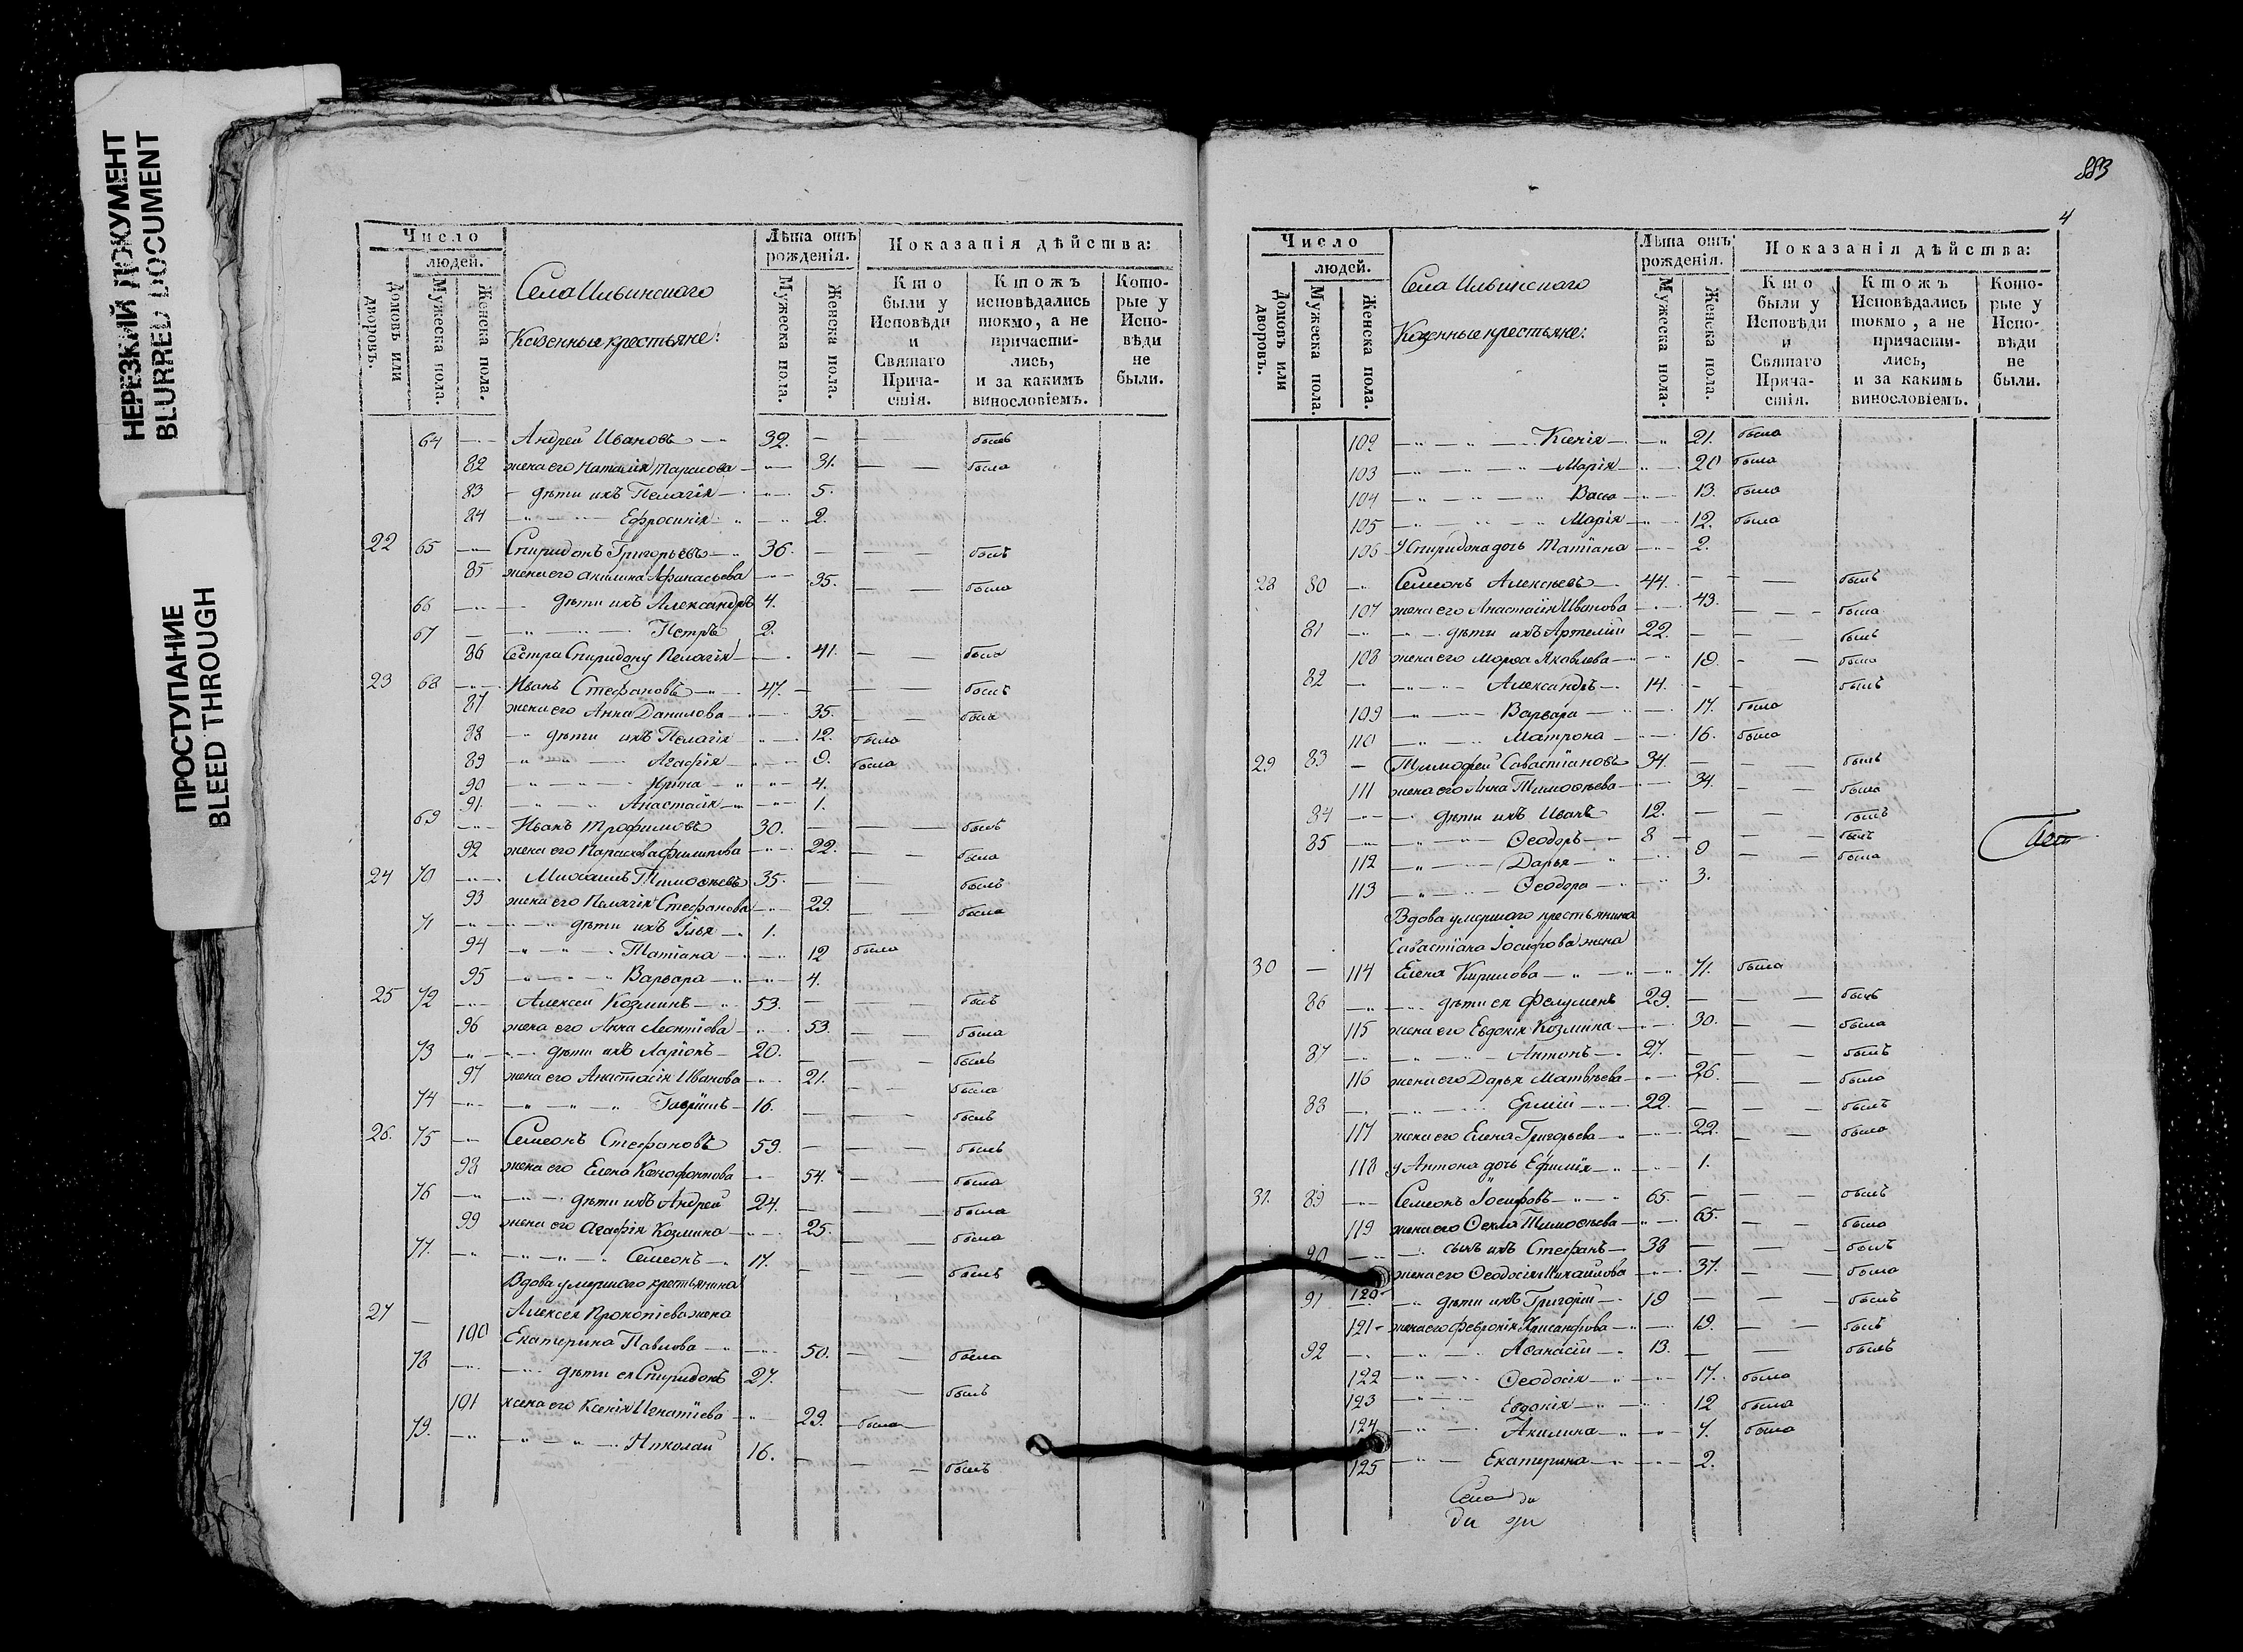 НЕРЕЗКИЙ ДОКУМЕНТ
BLURRED DOCUMENT
ПРОСТУПАНИЕ
BLEED THROUGH
Число
людей.
Домовъ или дворовъ.
Мужеска пола.
Женска пола.
Села Ильинскаго
Казенные крестьяне:
Лѣта отъ рожденія.
Мужеска пола.
Женска пола.
Показанія дѣйства:
Кто были у Исповѣди и Святаго Причастія.
Ктожъ исповѣдались токмо, а не причастились, и за какимъ винословіемъ.
Которые у Исповѣди не были.
64 Андрей Ивановъ 32. былъ
82 жена его Наталія Тарасова 31. была
83 дѣти ихъ Пелагія 5.
84 Ефросинія 2.
22 65 Спиридонъ Григорьевъ 36. былъ
85 жена его Акилина Афанасьева 35. была
66 дѣти ихъ Александръ 4.
67 Петръ 2.
86 Сестра Спиридону Пелагія 41. была
23 68 Иванъ Стефановъ 47. былъ
87 жена его Анна Данилова 35. была
88 дѣти ихъ Пелагія 12. была
89 Агафія 9. была
90 Ирина 4.
91 Анастасія 1.
69 Иванъ Трофимовъ 30. былъ
92 жена его Параскова Филипова 22. была
24 70 Михаилъ Тимоѳѣевъ 35. былъ
93 жена его Пелагія Стефанова 29. была
71 дѣти ихъ Илья 1.
94 Татіана 12 была
95 Варвара 4.
25 72 Алексѣй Козминъ 53. былъ
96 жена его Анна Леонтіева 53. была
73 дѣти ихъ Ларіонъ 20. былъ
97 жена его Анастасія Иванова 21. была
74 Гавріилъ 16. былъ
26. 75 Семеонъ Стефановъ 59. былъ
98 жена его Елена Ксенофонтова 54. была
76 дѣти ихъ Андрей 24. была
99 жена его Агафія Козмина 25. была
77. Семеонъ 17. былъ
Вдова умершаго крестьянина
27 Алексея Прокопіева жена
100 Екатерина Павлова 50. была
78 дѣти ея Спиридонъ 27. былъ
101 жена его Ксенія Игнатіева 29. была
79. Николай 16. былъ
883
4
Число
людей.
Домовъ или дворовъ.
Мужеска пола.
Женска пола.
Села Ильинскаго
Казенные крестьяне:
Лѣта отъ рожденія.
Мужеска пола.
Женска пола.
Показанія дѣйства:
Кто были у Исповѣди и Святаго Причастія.
Ктожъ Исповѣдались токмо, а не причастились, и за какимъ винословіемъ.
Которые у Исповѣди не были.
102 Ксенія 21. была
103 Марія 20 была
104 Васса 13. была
105 Марія 12. была
106 У Спиридона дочь Татіана 2.
28 80 Семеонъ Алексѣевъ 44. былъ
107 жена его Анастасія Иванова 43. была
81 дѣти ихъ Артемій 22. былъ
108 жена его Марѳа Яковлева 19. была
82 Александръ 14. былъ
109 Варвара 17. была
110 Матрона 16. была
29 83 Тимофей Савастіановъ 34. былъ
111 жена его Анна Тимоѳѣева 34. была
84 дѣти ихъ Иванъ 12. былъ
85 Ѳеодоръ 8 былъ
112 Дарья 9 была
113 Ѳеодора 3.
Вдова умершаго крестьянина
Савастіана Іосифова жена
30 114 Елена Кирилова 71. была
86 дѣти ея Филуменъ 29. былъ
115 жена его Евдокія Козмина 30. была
87 Антонъ 27. былъ
116 жена его Дарья Матвѣева 26. была
88 Ермій 22. былъ
117 жена его Елена Григорьева 22. была
118 у Антона дочь Ефимія 1.
31. 89 Семеонъ Іосифовъ 65. былъ
119 жена его Ѳекла Тимоѳѣева 65. была
90 сынъ ихъ Стефанъ 38 былъ
120 жена его Ѳеодосія Михайлова 37. была
91 дѣти ихъ Григорій 19 былъ
121 жена его Февронія Хрисанфова 19. былъ
92 Аѳанасій 13. былъ
122 Ѳеодосія 17. была
123 Евдокія 12 была
124 Акилина 7. была
125 Екатерина 2.
Села